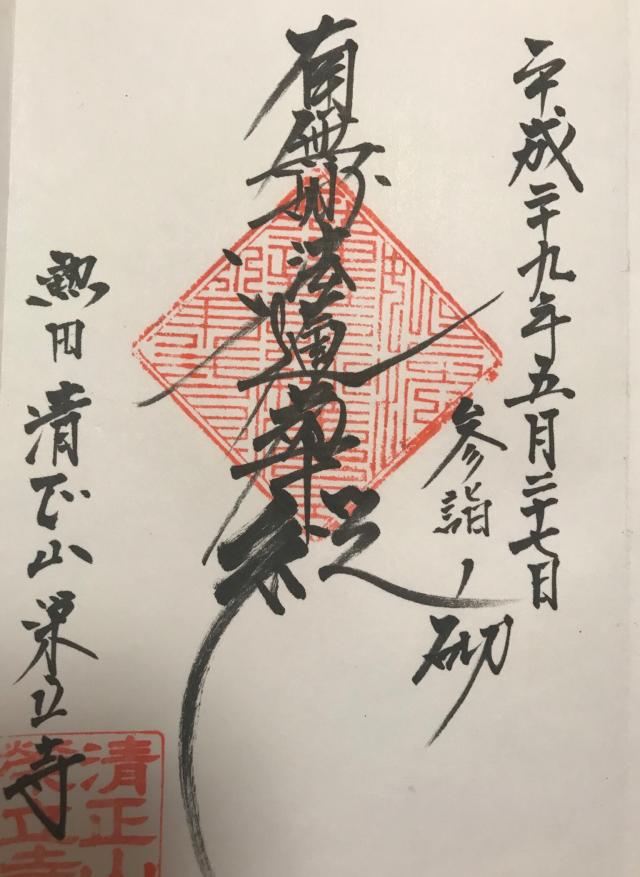 平成二十九年五月二十七日
参詣ノ砌
南無妙法蓮華経
熱田 清正山 栄立寺
清正山
榮立寺